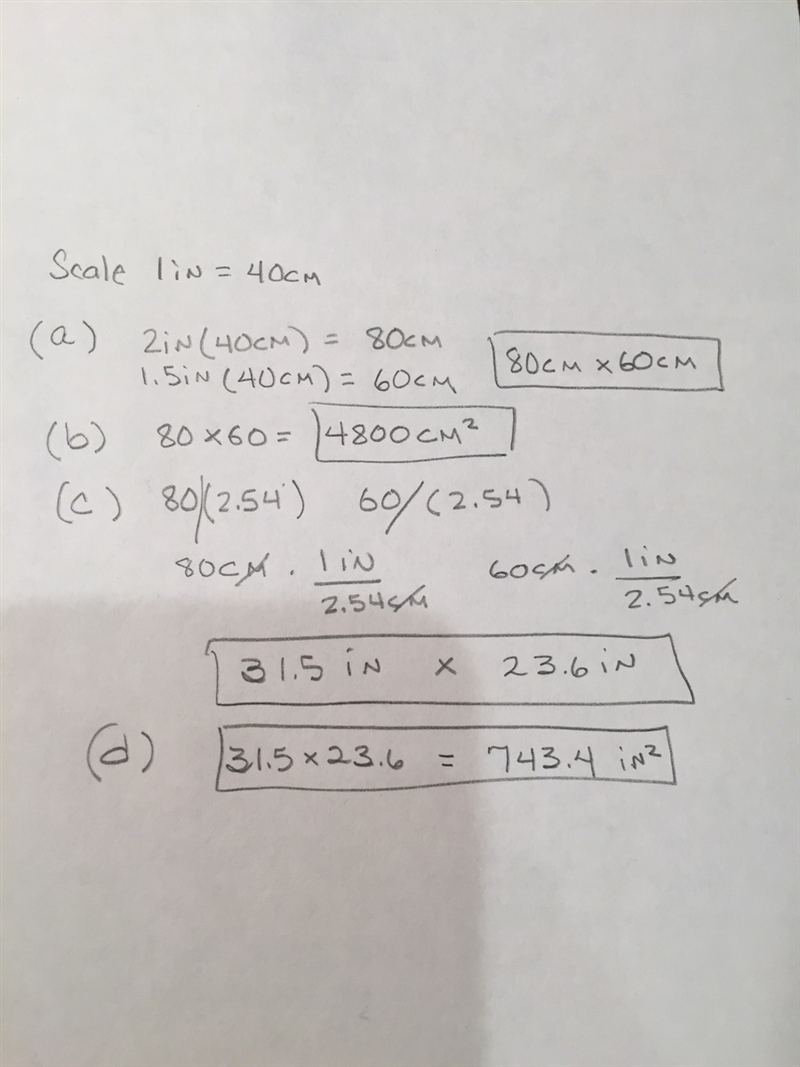 Scale 1in = 40cm
(a) 2in(40cm) = 80cm
1.5in(40cm) = 60cm
80cm x 60cm
(b) 80 x 60 = 4800cm²
(c) 80/(2.54) 60/(2.54)
80cm · 1in/2.54cm 60cm · 1in/2.54cm
31.5 in x 23.6 in
(d) 31.5 x 23.6 = 743.4 in²